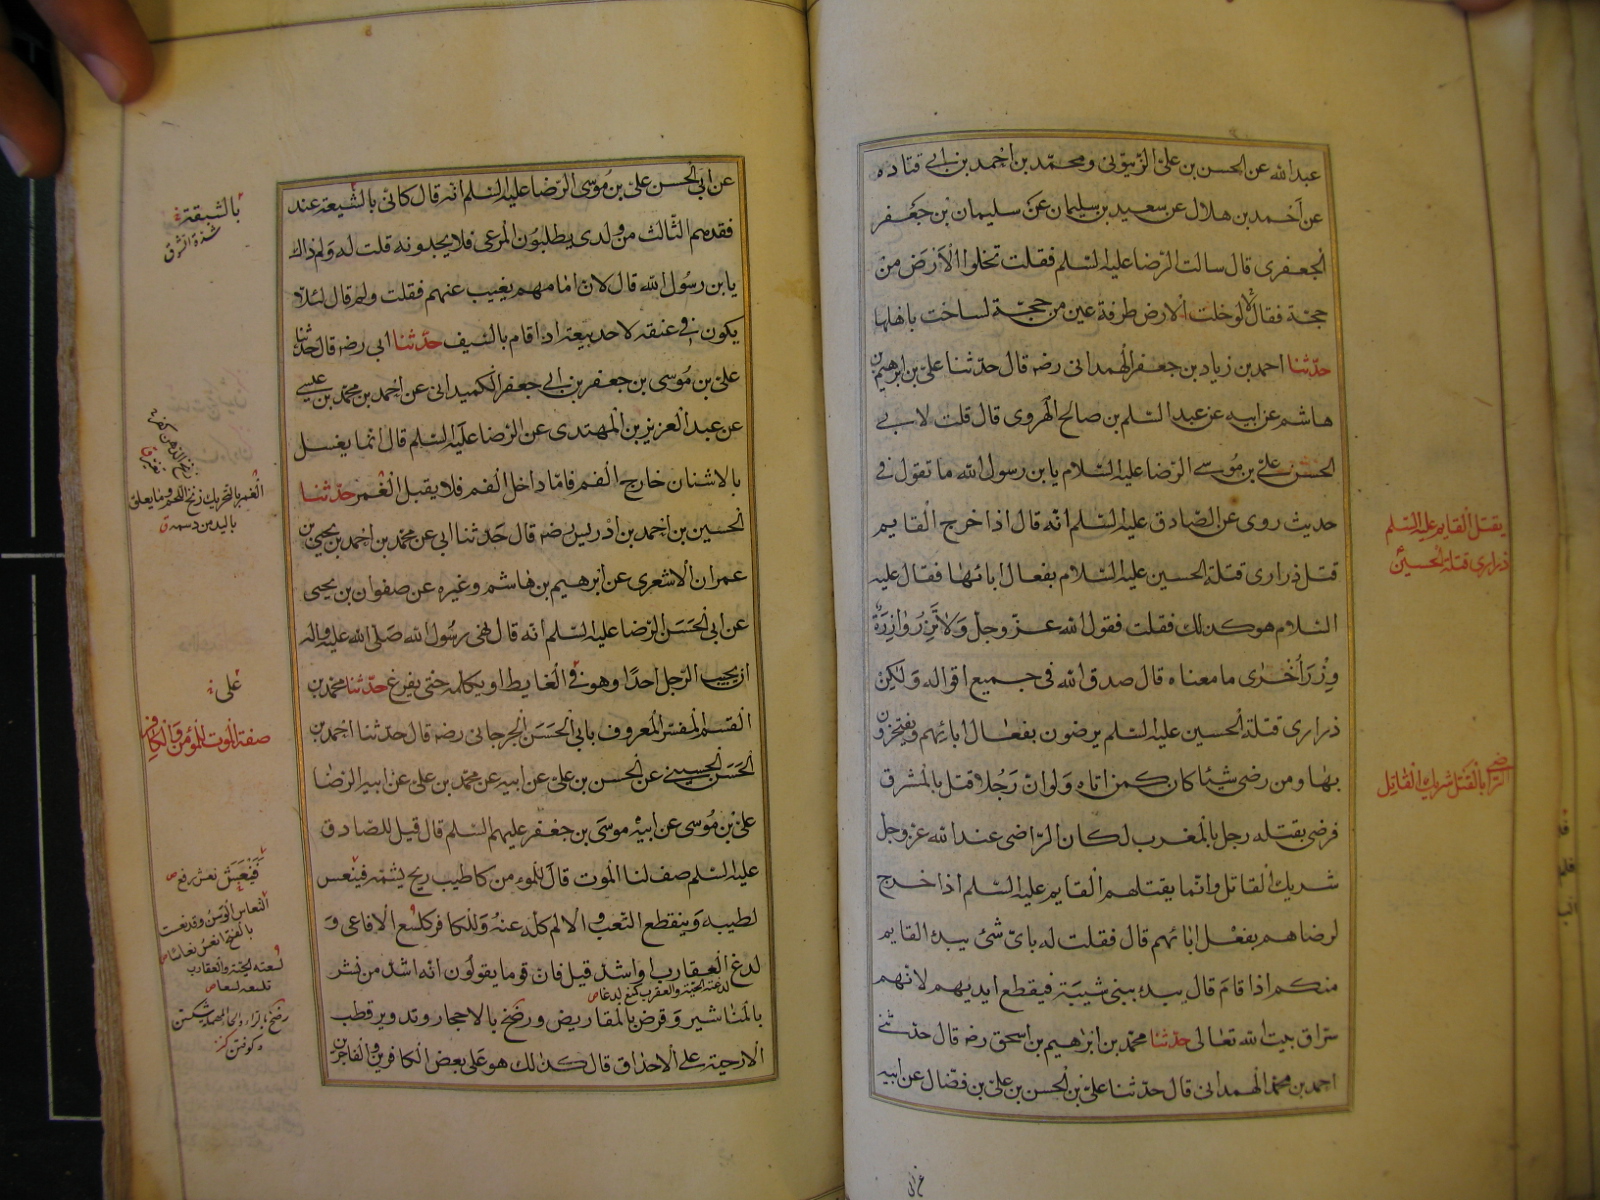 عبدالله عن الحسن بن علیّ الزیتونی ومحمّد بن احمد بن ابی قتاده
عن احمد بن هلال عن سعید بن سلیمان عن سلیمان بن جعفر
الجعفری قال سالت الرّضا علیه السّلم فقلت تخلوا الارض من
حجّة فقال لا لوخلت الارض طرفة عین من حجّة لساخت باهلها
حدّثنا احمد بن زیاد بن جعفر الهمدانی رضه قال حدّثنا علیّ بن ابرهیم بن
هاشم عن ابیه عن عبد السّلم بن صالح الهروی قال قلت لابی
الحسن علیّ بن موسی الرّضا علیه السّلام یا بن رسول الله ما تقول فی
حدیث روی عن الصّادق علیه السّلم انّه قال اذا خرج القایم
قتل ذراری قتلة الحسین علیه السّلام بفعال ابائها فقال علیه
السّلام هو کذلک فقلت فقول الله عزّ وجلّ ولا تزر وازرة
وزر أخری ما معناه قال صدق الله فی جمیع اقواله ولکن
ذراری قتلة الحسین علیه السّلم یرضون بفعال ابائهم ویفتخرون
بها ومن رضی شیئا کان کمن اتاه ولو انّ رجلا قتل بالمشرق
فرضی بقتله رجل بالمغرب لکان الرّاضی عند الله عزّ وجلّ
شریک القاتل وانّما یقتلهم القایم علیه السّلم اذا خرج
لرضاهم بفعل ابائهم قال فقلت له بایّ شئ یبدء القایم
منکم اذا قام قال یبدء ببنی شیبة فیقطع ایدیهم لانّهم
سرّاق بیت الله تعالی حدّثنا محمّد بن ابرهیم بن اسحق رضه قال حدّثنی
احمد بن محمّد الهمدانی قال حدّثنا علیّ بن الحسن بن علیّ بن فضّال عن ابیه
یقتل القایم علیه السّلم
ذراری قتلة الحسین ع
الرّاضی بالقتل شریک القاتل
عن ابی الحسن علیّ بن موسی الرّضا علیه السّلم انّه قال کانّی بالشّیعة عند
فقدهم الثّالث من ولدی یطلبون المرعی فلا یجدونه قلت له ولم ذاک
یا بن رسول الله قال لانّ امامهم یغیب عنهم فقلت ولم قال لئلّا
یکون فی عنقه لاحد بیعة اذا قام بالسّیف حدّثنا ابی رضه قال حدّثنا
علیّ بن موسی بن جعفر بن ابی جعفر الکمیدانی عن احمد بن محمّد بن عیسی
عن عبد العزیز بن المهتدی عن الرّضا علیه السّلم قال انّما یغسل
بالاشنان خارج الفم فامّا داخل الفم فلا یقبل الغمر حدّثنا
الحسین بن احمد بن ادریس رضه قال حدّثنا ابی عن محمّد بن احمد بن یحیی بن
عمران الاشعری عن ابرهیم بن هاشم وغیره عن صفوان بن یحیی
عن ابی الحسن الرّضا علیه السّلم انّه قال نهی رسول الله صلّی الله علیه واله
ان یجیب الرّجل احدًا وهو فی الغایط او یکلّمه حتّی یفرغ حدّثنا محمّد بن
القسم المفسّر المعروف بابی الحسن الجرجانی رضه قال حدّثنا احمد بن
الحسن الحسینی عن الحسن بن علیّ عن ابیه عن محمّد بن علیّ عن ابیه الرّضا
علیّ بن موسی عن ابیه موسی بن جعفر علیهم السّلم قال قیل للصّادق
علیه السّلم صف لنا الموت قال للمؤمن کاطیب ریح یشمّه فینعس
لطیبه وینقطع التّعب والالم کلّه عنه وللکافر کلسع الافاعی و
لدغ العقارب او اشدّ قیل فانّ قوما یقولون انّه اشدّ من نشر
لدغته الحیّة والعقرب کمنع لدغا ص
بالمناشیر وقرض بالمقاریض ورضخ بالاحجار وتدویر قطب
الارحیة علی الاحداق قال کذلک هو علی بعض الکافرین والفاجرین
بالشبقة
شدّة الشوق
الغمر بالتحریک زنخ اللحم وما یعلق
بالید من دسمه ق
علی
صفة الموت للمؤمن والکافر
النعاس الوسن وقد نعست
لسعته الحیّة والعقارب
تلسعه لسعا ص